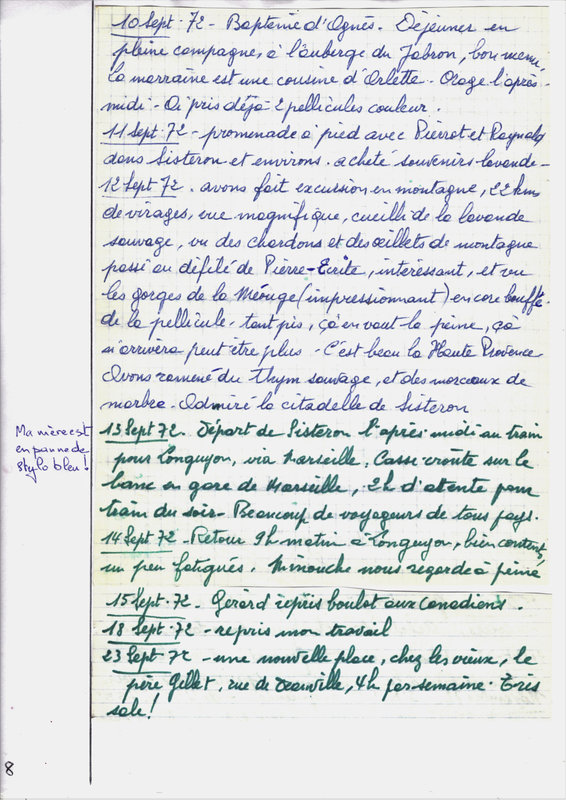 10 Sept. 72 - Baptême d'Agnès. Déjeuner en
pleine campagne, à l'auberge du Jabron, bon menu.
La marraine est une cousine d'Arlette - Orage l'après-
midi - Ai pris déjà 2 pellicules couleur.
11 Sept. 72 - promenade à pied avec Pierrot et Raynald
dans Sisteron et environs. acheté souvenirs lavande -
12 Sept 72. avons fait excursion en montagne, 22 kms
de virages, vue magnifique, cueilli de la lavande
sauvage, vu des chardons et des œillets de montagne
passé au défilé de Pierre-Ecrite, intéressant, et vu
les gorges de la Méouge (impressionnant) encore bouffé
de la pellicule - tant pis, çà en vaut la peine, çà
n'arrivera peut être plus - C'est beau la Haute Provence
Avons ramené du thym sauvage, et des morceaux de
marbre - Admiré la citadelle de Sisteron
Ma mère est
en panne de
stylo bleu !
13 Sept 72. Départ de Sisteron l'après-midi au train
pour Longuyon, via Marseille. Casse-croûte sur le
banc en gare de Marseille, 2h d'attente pour
train du soir - Beaucoup de voyageurs de tous pays.
14 Sept 72 - Retour 9h matin à Longuyon, bien contents,
un peu fatigués. Minouche nous regarde à peine
15 Sept. 72. Gérard repris boulot aux Canadiens.
18 Sept. 72 - repris mon travail
23 Sept 72 - une nouvelle place, chez les vieux, le
père Gillet, rue de 4h par semaine. Très
sale !
8